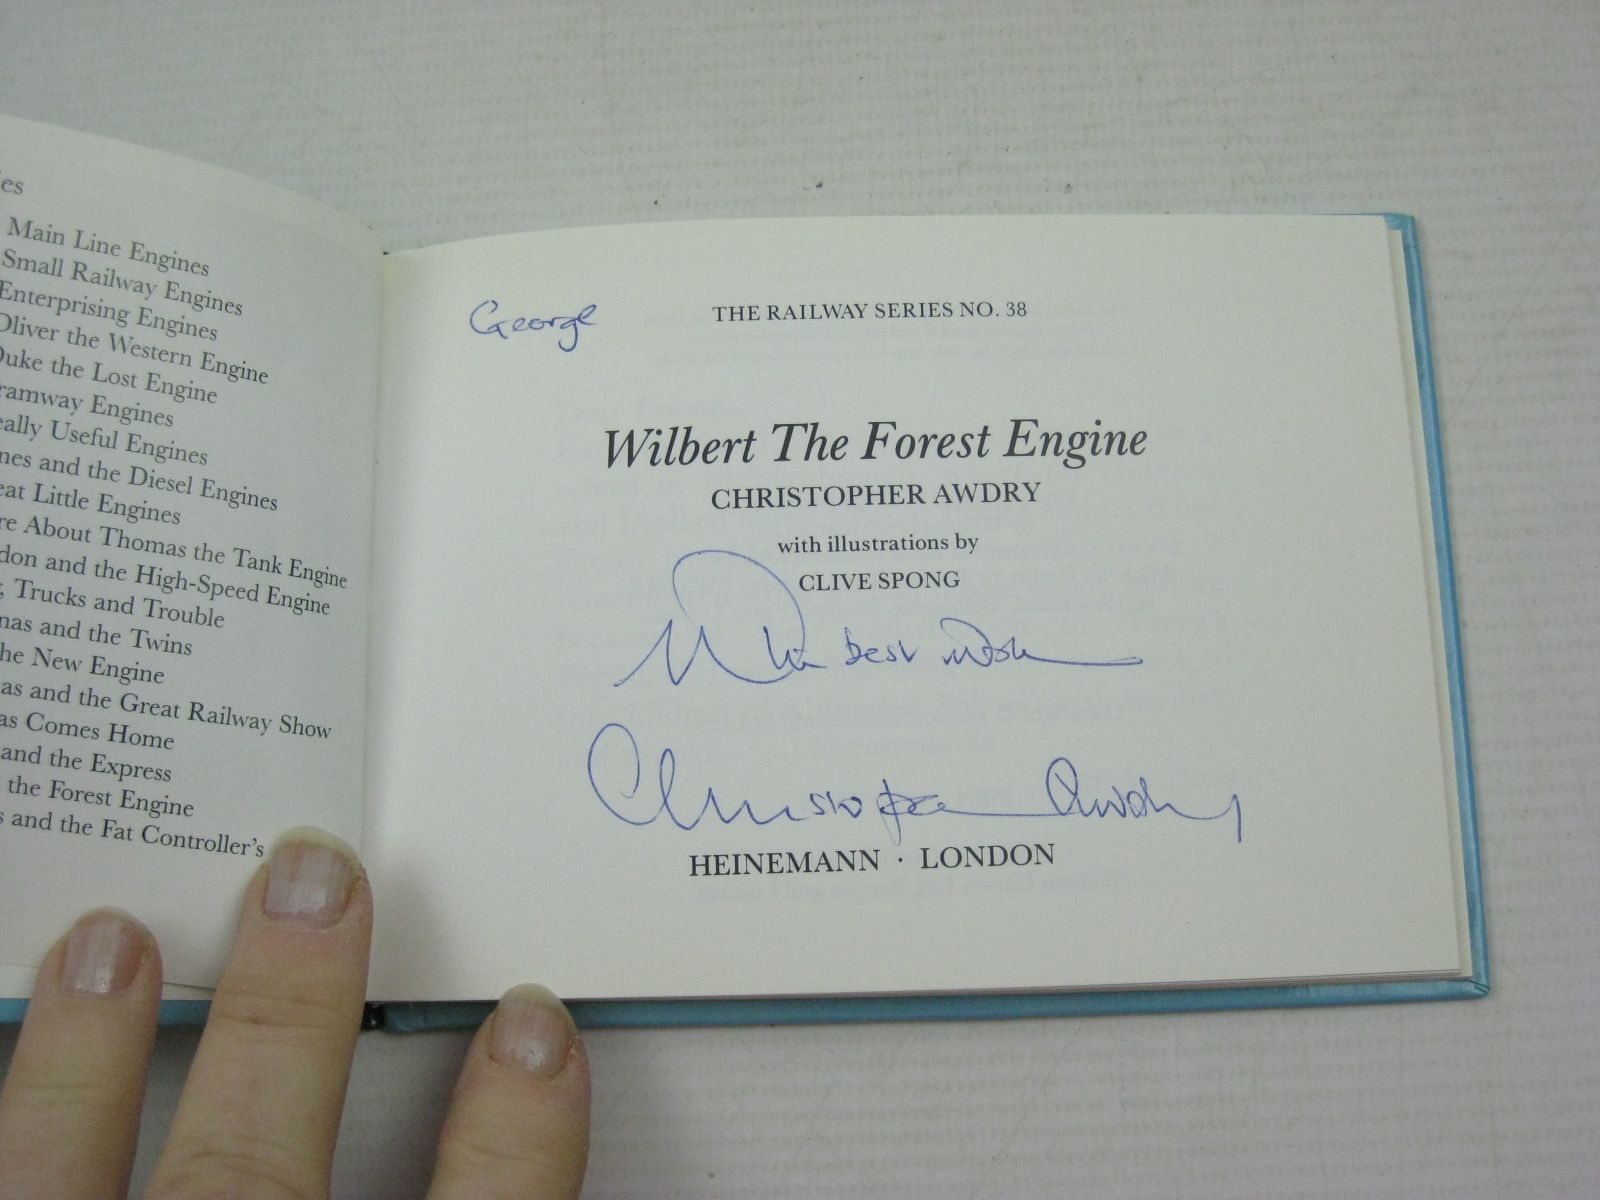 es
Main Line Engines
Small Railway Engines
Enterprising Engines
Oliver the Western Engine
Duke the Lost Engine
ramway Engines
eally Useful Engines
mes and the Diesel Engines
eat Little Engines
re About Thomas the Tank Engine
don and the High-Speed Engine
, Trucks and Trouble
mas and the Twins
he New Engine
as and the Great Railway Show
as Comes Home
and the Express
the Forest Engine
s and the Fat Controller's
George
THE RAILWAY SERIES NO. 38
Wilbert The Forest Engine
CHRISTOPHER AWDRY
with illustrations by
CLIVE SPONG
With best wishes
Christopher Awdry
HEINEMANN · LONDON